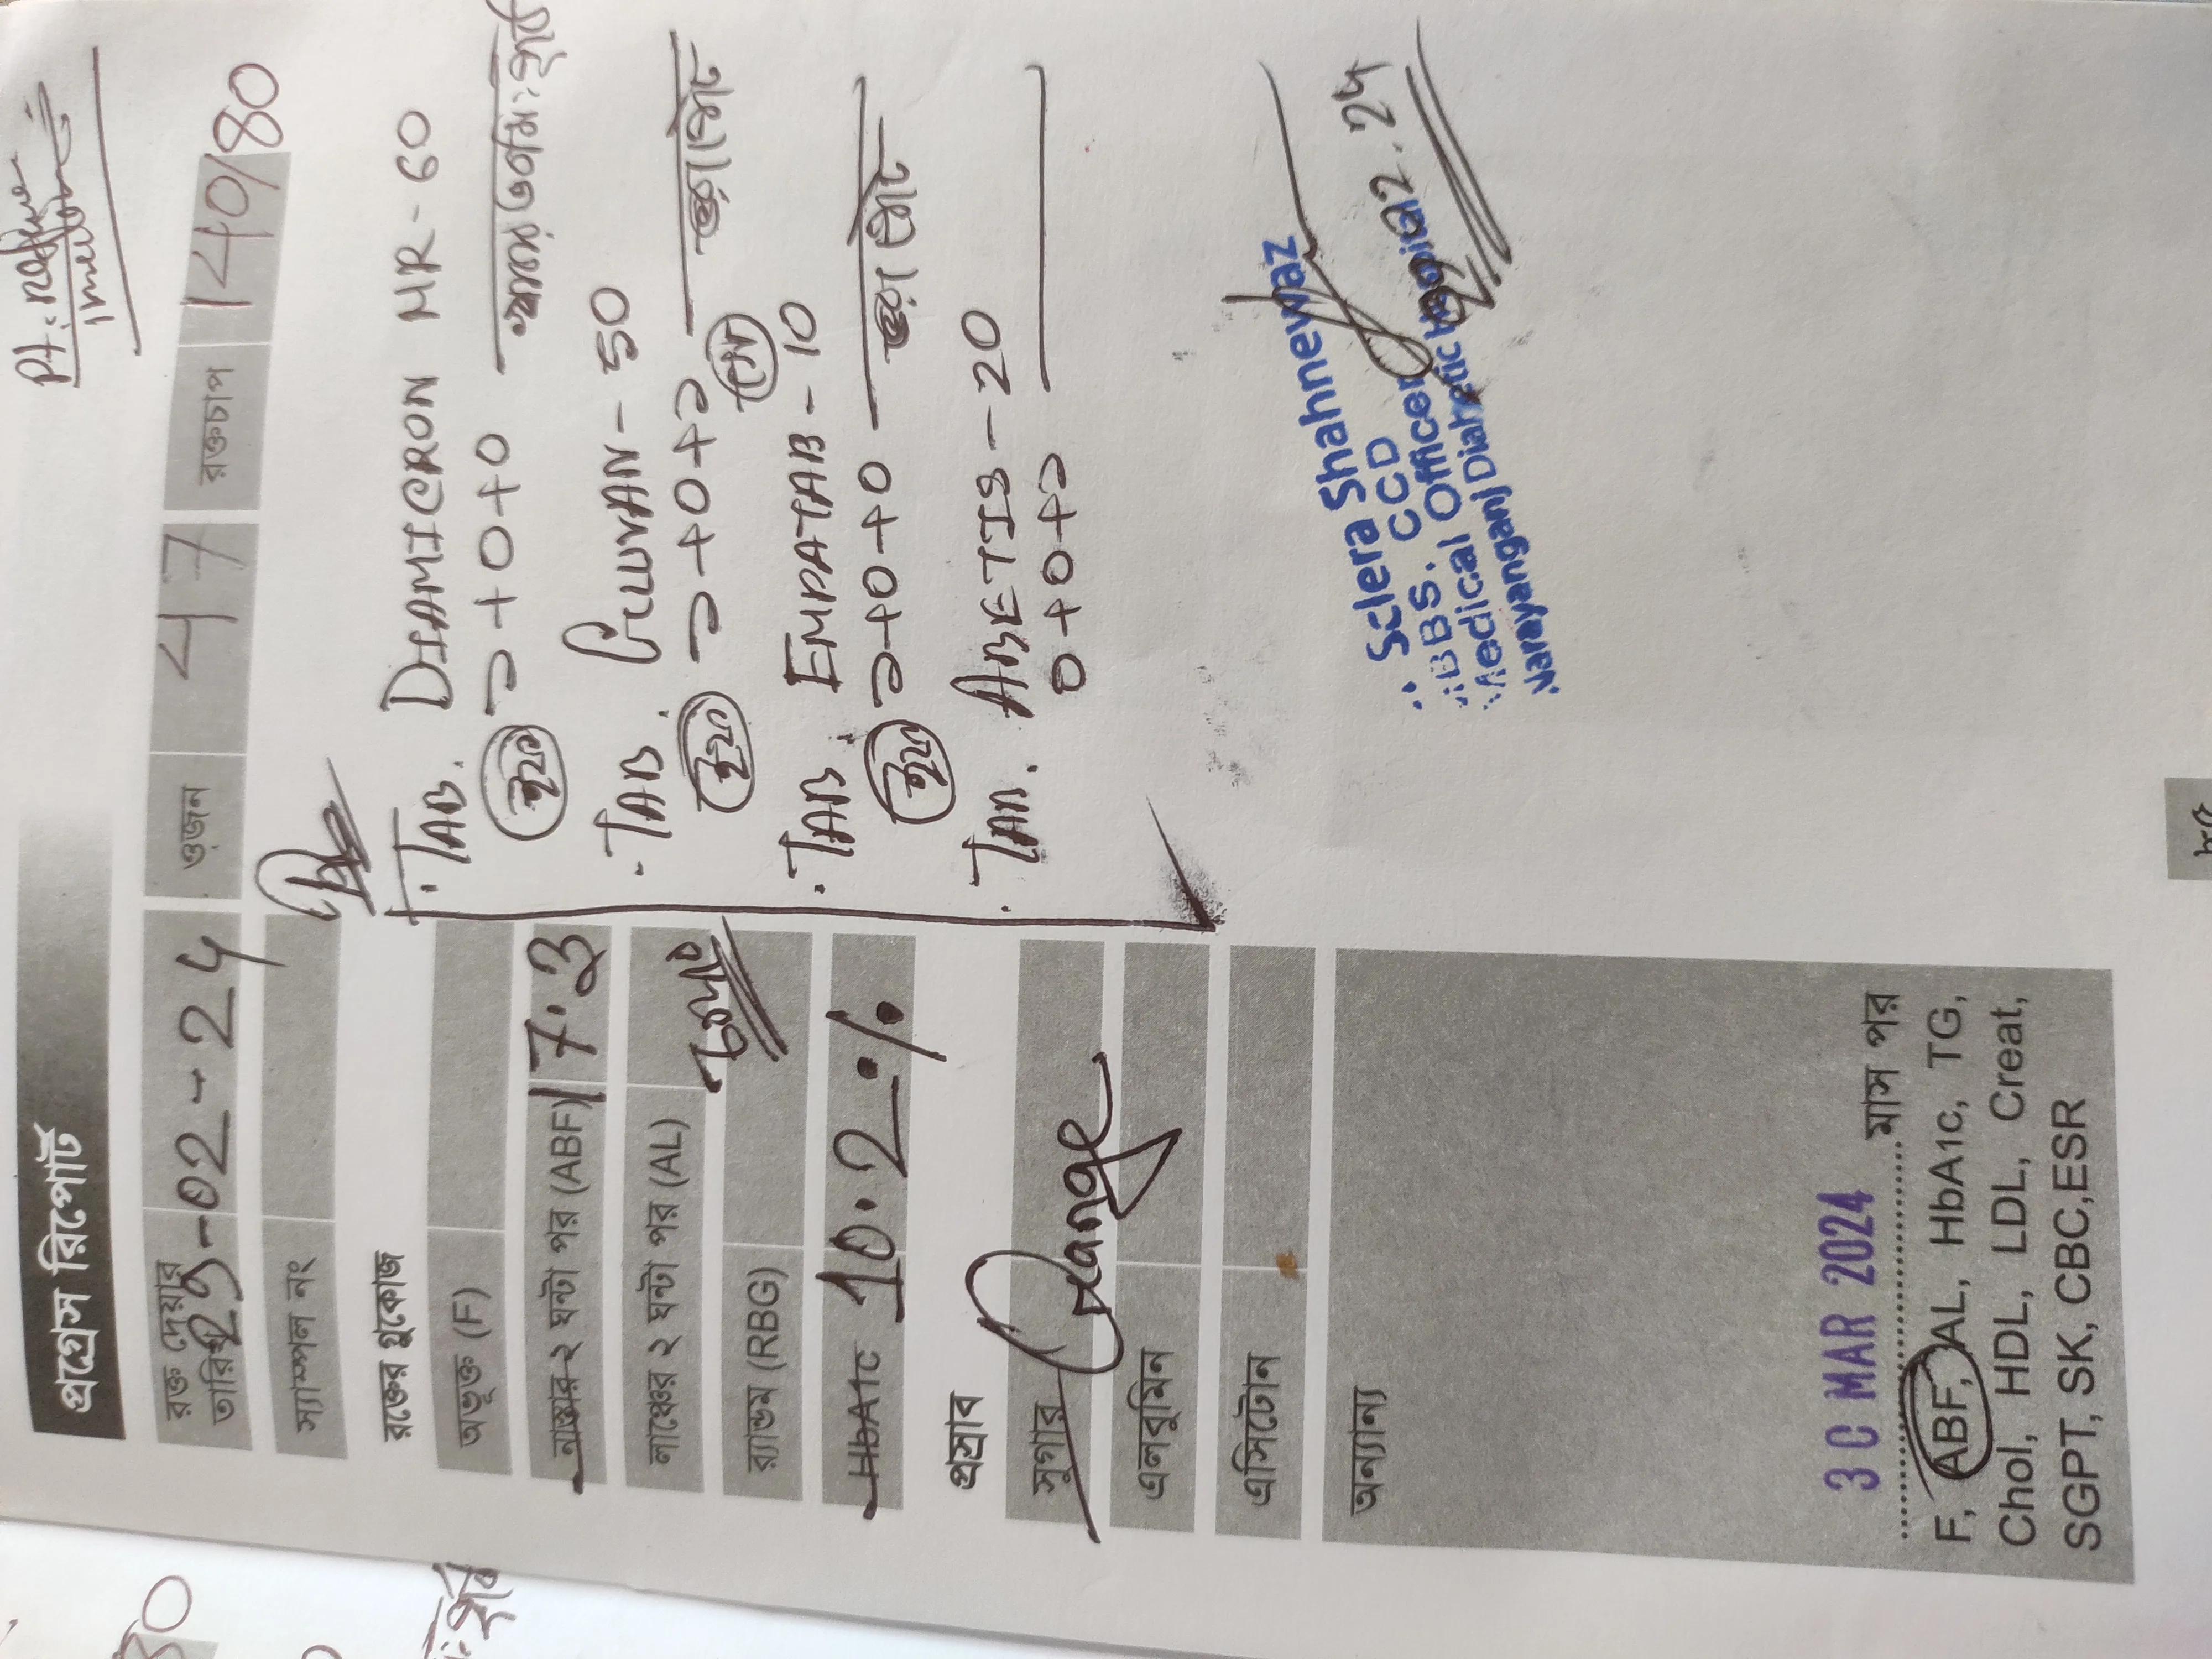 প্রগ্রেস রিপোর্ট
রক্ত দেয়ার তারিখ 29-02-24
ওজন 47
রক্তচাপ 140/80
স্যাম্পল নং
রক্তের গ্লুকোজ
অভূক্ত (F)
নাস্তার ২ ঘন্টা পর (ABF) 17.3
লাঞ্চের ২ ঘন্টা পর (AL)
র‍্যান্ডম (RBG)
HbA1c 10.2%
প্রস্রাব
সুগার Orange
এলবুমিন
এসিটোন
অন্যান্য
30 MAR 2024
মাস পর
F, ABF, AL, HbA1c, TG,
Chol, HDL, LDL, Creat,
SGPT, SK, CBC,ESR
Pt:
TAB. DIAMICRON MR-60
১+0+0
TAB. GLUVAN-50
১+0+১
TAB. EMPATAB-10
১+0+0
TAB. ABETIS-20
0+0+১
Sclera Shahnewaz
BBS. CCD
Medical Officer
Narayanganj Diabetic Hospital